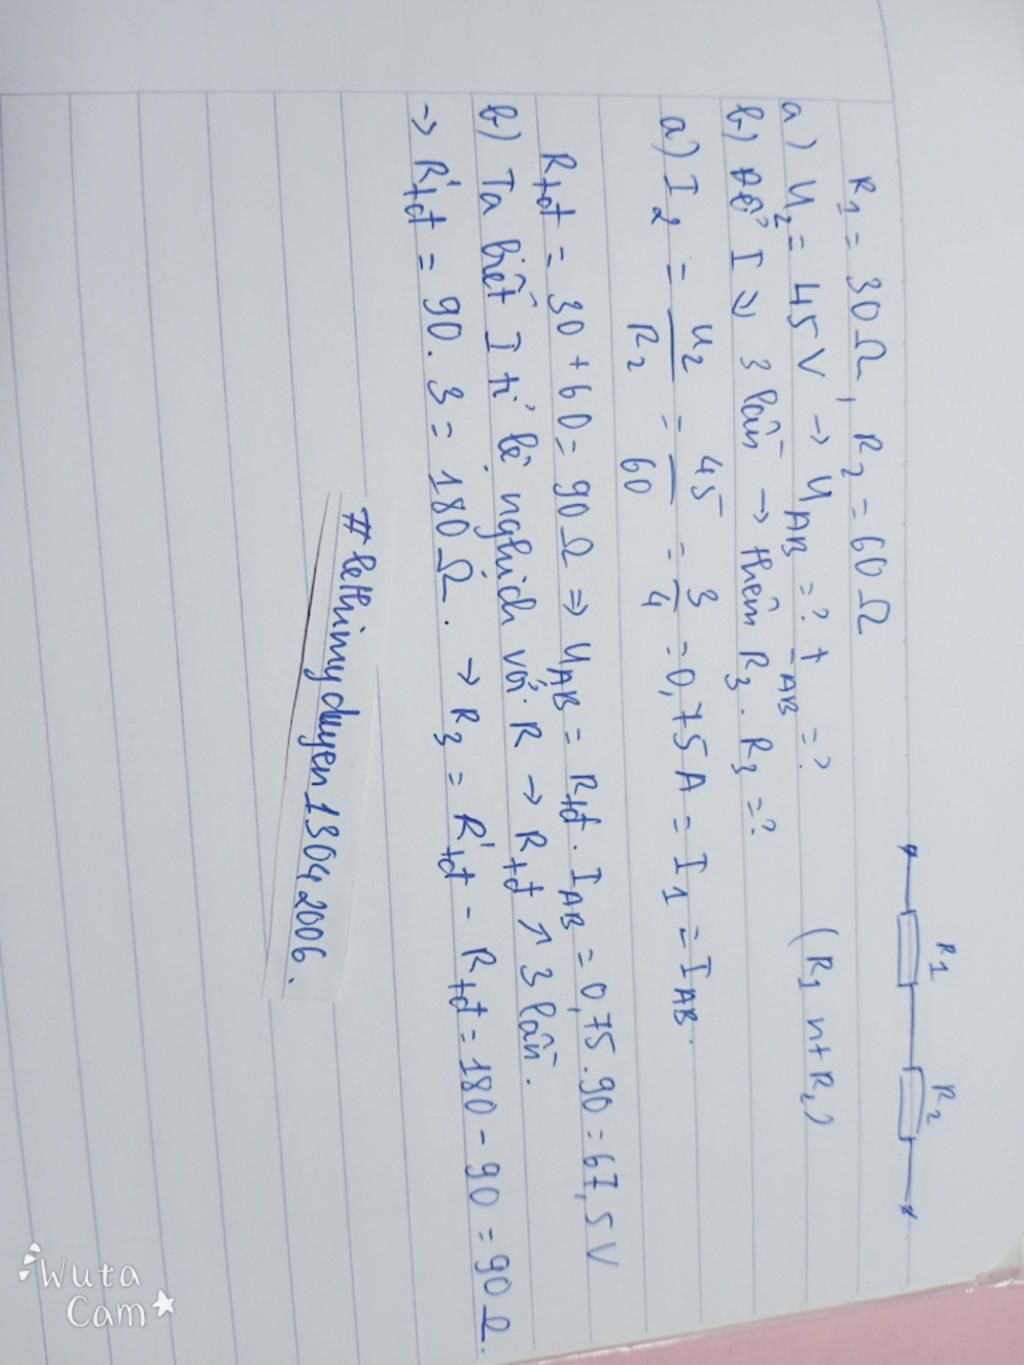 R1 R2
R1 = 30 Ω, R2 = 60 Ω
a) U2 = 45 V → UAB = ? + IAB = ? (R1 nt R2)
b) Để I ↘ 3 lần → thêm R3. R3 = ?
a) I2 = U2/R2 = 45/60 = 3/4 = 0,75 A = I1 = IAB.
Rtđ = 30 + 60 = 90 Ω ⇒ UAB = Rtđ . IAB = 0,75 . 90 = 67,5 V
b) Ta biết I tỉ lệ nghịch với R → Rtđ ↑ 3 lần.
→ R'tđ = 90 . 3 = 180 Ω. → R3 = R'tđ - Rtđ = 180 - 90 = 90 Ω.
#lethimyduyen13042006.
Wuta
Cam